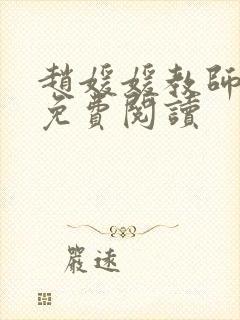 趙媛媛教師
免費閱讀
嚴速